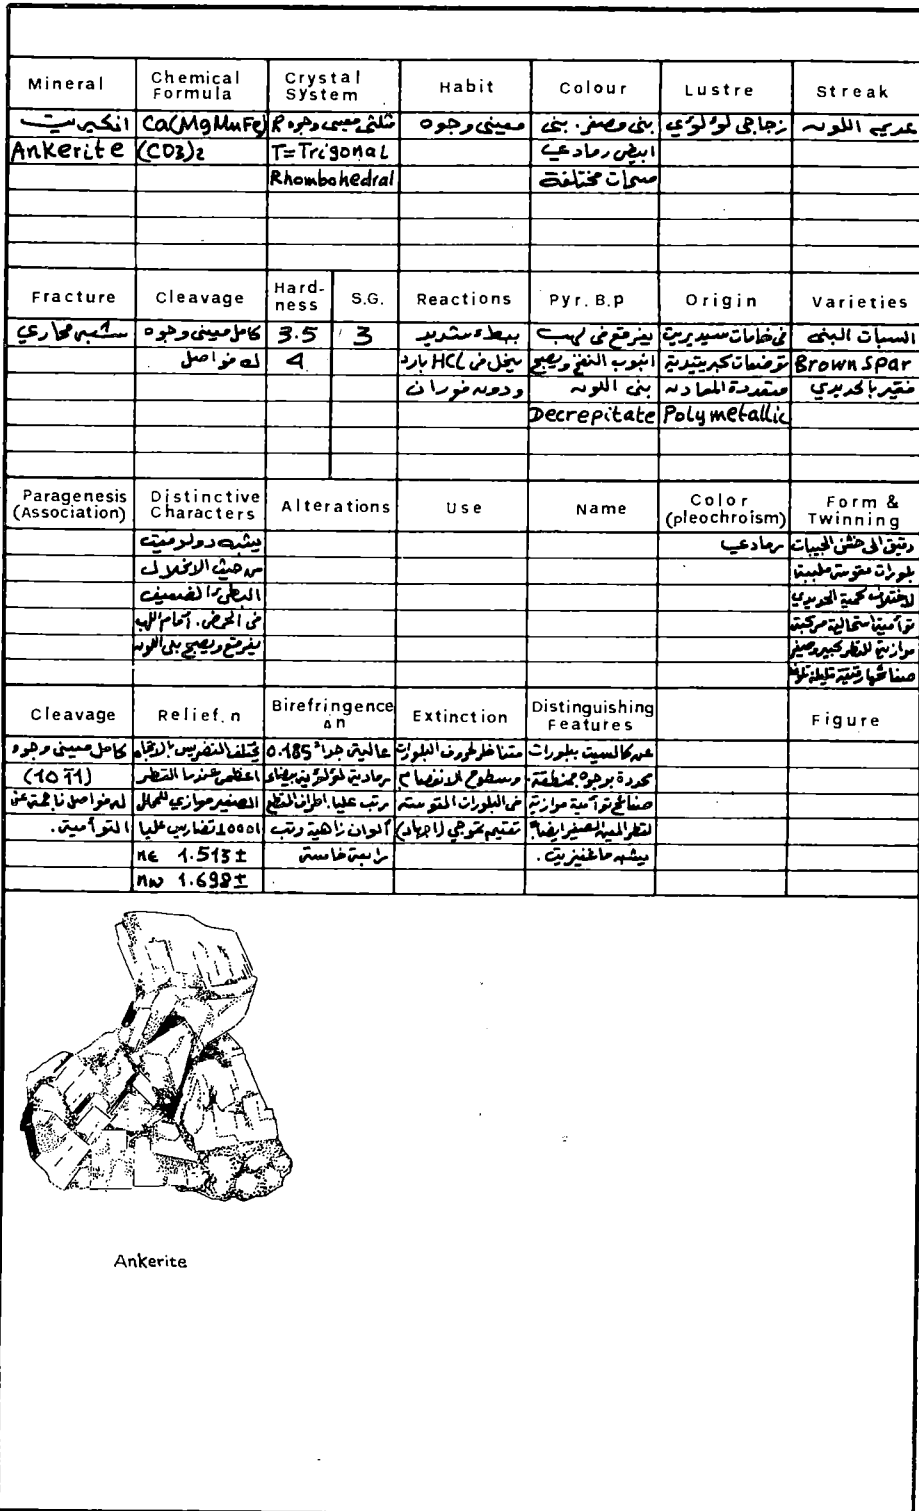 Mineral | Chemical Formula | Crystal System | Habit | Colour | Lustre | Streak
انكيريت | Ca(MgMnFe) | ثلثي معيني وجوه R | معيني وجوه | بني مصفر. بني | زجاجي لؤلؤي | عديم اللون
Ankerite | (CO3)2 | T=Trigonal | ابيض رمادي
Rhombohedral | مختلفة
Fracture | Cleavage | Hard-ness | S.G. | Reactions | Pyr. B.p | Origin | Varieties
شبه محاري | كامل معيني وجوه | 3.5 | 3 | ببطء شديد | يفرقع في لهب | في خامات سيديريت | السبات البني
له فواصل | 4 | ينحل في HCL بارد | انبوب النفخ ويصبح | توضعات كبريتيدية | Brown Spar
ودون فوران | بني اللون | متعددة المعادن | بالحديدي
Decrepitate | Polymetallic
Paragenesis (Association) | Distinctive Characters | Alterations | Use | Name | Color (pleochroism) | Form & Twinning
يشبه دولوميت | رمادي | دقيق الى خشن الحبيبات
من حيث الانحلال | بلورات مقوسة
البطيء الضعيف | كمية الحديدي
في الحمض. أمام اللهب | توأمية مركبة
يفرقع ويصبح بني اللون | موازية للقطر كبير وصغير
صفائحها
Cleavage | Relief. n | Birefringence Δn | Extinction | Distinguishing Features | Figure
كامل معيني وجوه | تختلف التضريس بالاتجاه | عالية جدا 0.185 | متناظر لحروف البلورات | عن كالسيت بلورات
(10ī1) | اعظمي عندما القطر | رمادية لؤلؤية بيضاء | وسطوح الانفصام | محدودة بوجوه
له فواصل ناجمة عن | الصغير موازي للمحلل | رتب عليا. اطراف المقطع | في البلورات المقوسة | صفائح توأمية موازية
التوأمية. | تضاريس عليا | ألوان زاهية رتب | تموجي (اجهاد) | لقطر المعين الصغير ايضا
nε 1.513± | رابعة خامسة | يشبه ماغنيزيت.
nω 1.698±
Ankerite